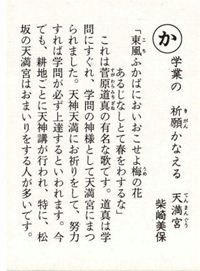 か
学業の　祈願かなえる　天満宮
きがん
てんまんぐう
柴崎美保
「東風ふかばにおいおこせよ梅の花
こち
うめ
あるじなしとて春をわするな」
これは菅原道真の有名な歌です。道真は学
すがわらみちざね
問にすぐれ、学問の神様として天満宮にまつ
られました。天神天満にお祈りをして、努力
すれば学問が必ず上達するといわれます。今
でも、耕地ごとに天神講が行われ、特に、松
坂の天満宮はおまいりをする人が多いです。